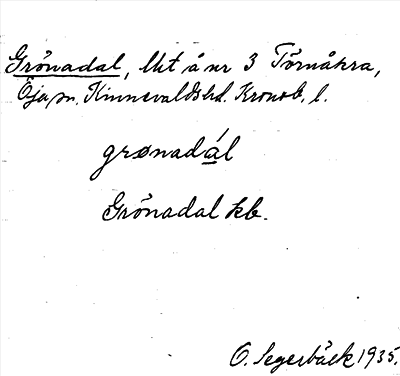 Grönadal, lht å nr 3 Törnåkra,
Öja sn. Kinnevaldshd. Kronob. l.
grønadál
Grönadal kb.
O. Segerbäck 1935.